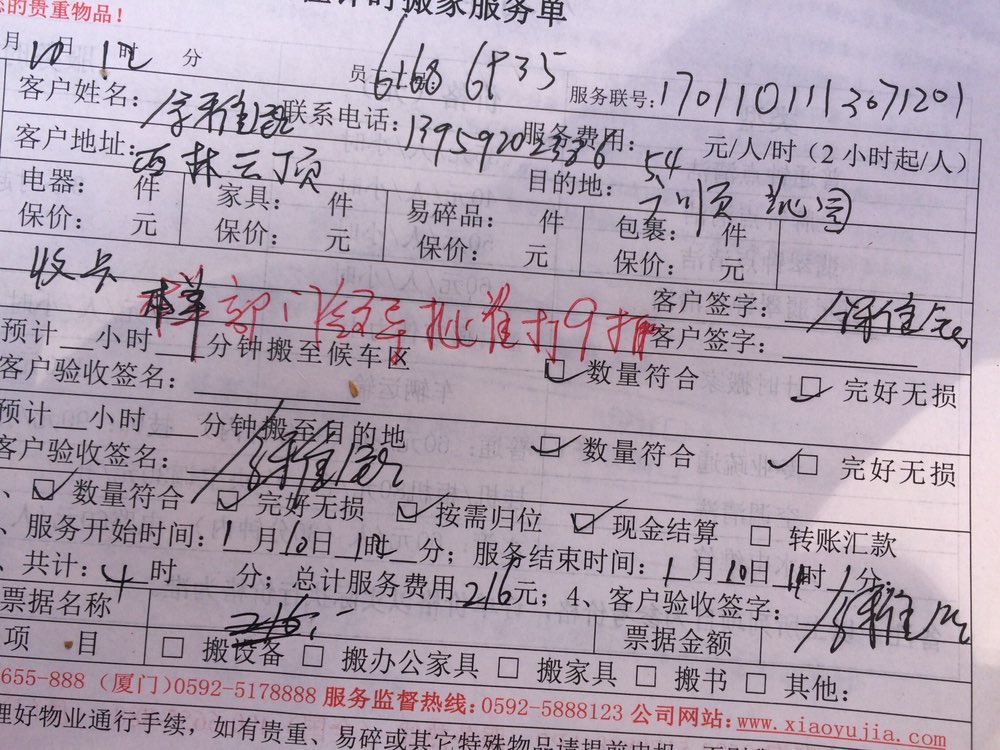 您的贵重物品！
计时搬家服务单
月10日1时 分
员工 6168 6835 服务联号：1701101113071201
客户姓名： 联系电话：13959202336 服务费用：54元/人/时（2小时起/人）
客户地址：西林云顶 目的地：
电器： 件 家具： 件 易碎品： 件 包裹： 件
保价： 元 保价： 元 保价： 元 保价： 元
收 客户签字：
部门领导批准打9折
预计 小时 分钟搬至候车区 客户签字：
客户验收签名： ☑数量符合 ☑完好无损
预计 小时 分钟搬至目的地
客户验收签名： ☑数量符合 ☑完好无损
、☑数量符合 ☑完好无损 ☑按需归位 ☑现金结算 □转账汇款
、服务开始时间：1月10日1时 分；服务结束时间：1月10日 时 分；
、共计：4时 分；总计服务费用216元；4、客户验收签字：
票据名称 216 票据金额
项 目 □ 搬设备 □ 搬办公家具 □ 搬家具 □ 搬书 □ 其他：
655-888（厦门)0592-5178888 服务监督热线：0592-5888123 公司网站：www.xiaoyujia.com
理好物业通行手续，如有贵重、易碎或其它特殊物品请提前申报，